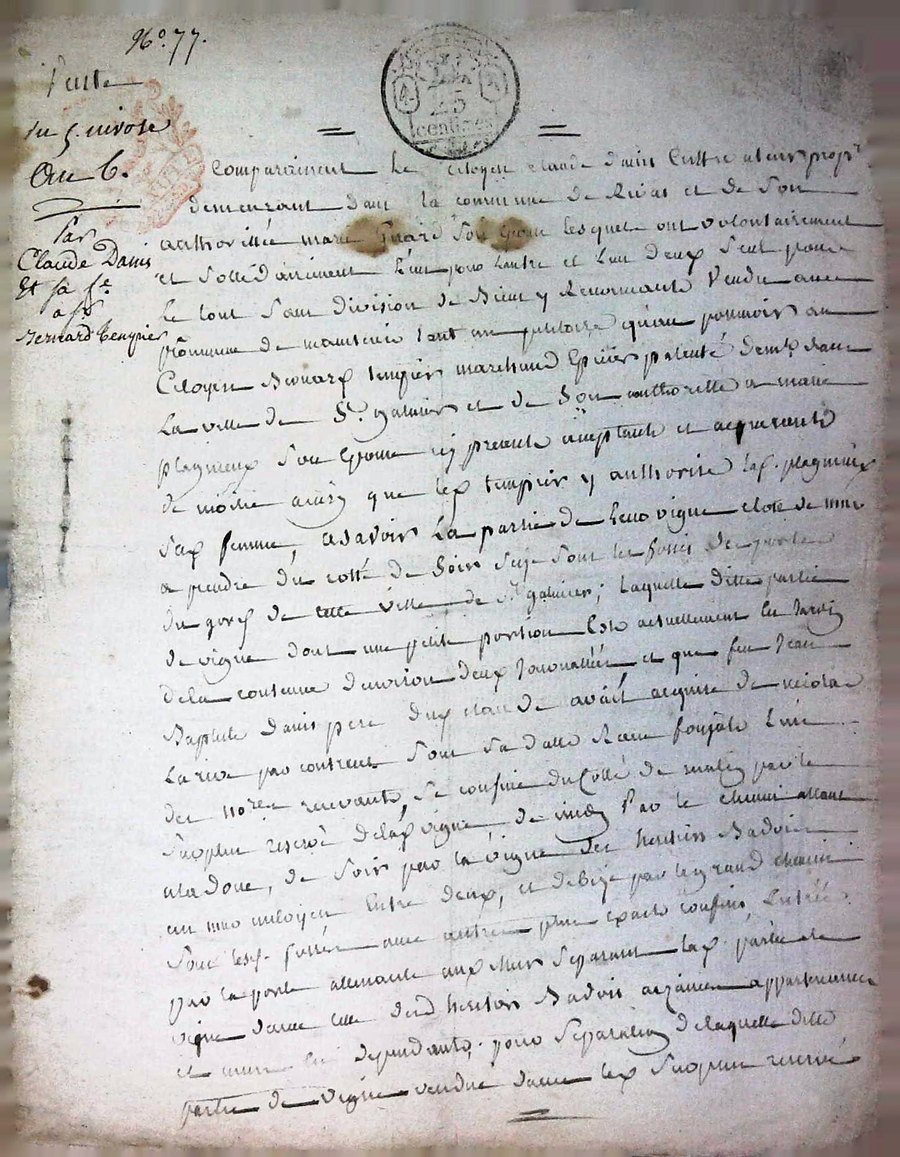 N°. 77.
Vente
du 5 nivose
an 6.
Par
Claude Danis
Et sa fe
a
Bernard Tenupier
25
centimes
Comparaiment Le Citoyen claude danis Cultivateur propre
demeurant dans la commune de Rivas et de Son
authorité marie Son Epouse lesquels ont volontairement
et Sollidairement L'un pour Lautre et L'un d'eux Seul pour
Le tout Sans division de Bien y Renonçants Vendu avec
promesse de maintenir tant au petitoire qu'au possessoir au
Citoyen Bernard tenupier marchand Epicier patenté demt dans
La ville de St galmier et de Son authorité a marie
plagnieux Son Epouse icy presente acceptante et acquerante
de moitié avec que led tenupier y authorise lad. plagnieux
Sad femme, asavoir La partie de vigne close de murs
a prendre du cotté de Soir Size Sous les fossés de
de cette ville de St galmier; laquelle ditte partie
de vigne dont une petite portion Est actuellement En Jardin
de la contenue denviron deux Journallées et que feu Jean
Baptiste danis pere dud claude avait acquise de nicolas
Larive par contrat Sous Sa datte Reçu L'un
des notres recevants, Se confine du Cotté de matin par le
Surplus reservé de lad vigne, de midy Par le chemin allant
a la doue, de Soir par la vigne des heritiers Badoit
un mur mitoyen Entre deux, et de bize par le grand chemin
Sous lesd. fossés avec autres plus exacts confins, Entrée
par la porte aux murs Separant lad. partie de
vigne davec celle desd heritiers Badoit aizances appartenances
et dependants, pour Separation de laquelle ditte
partie de vigne vendue davec led Surplus reservé